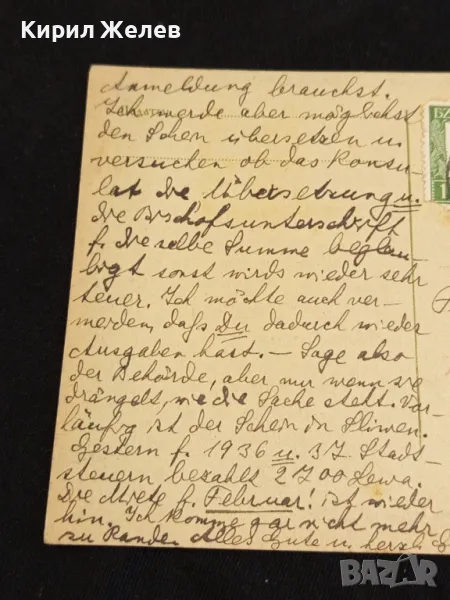 Кирил Желев
Anmeldung brauchst.
Ich werde aber möglichst
den Schein übersetzen u.
versuchen ob das Konsu-
lat die Übersetzung u.
die Bischofsunterschrift
f. dieselbe Summe beglau-
bigt sonst wirds wieder sehr
teuer. Ich möchte auch ver-
meiden, daß Du dadurch wieder
Ausgaben hast. – Sage also
der Behörde, aber nur wenn sie
drängelt, wie die Sache steht. Vor-
läufig ist der Schein in Sliwen.
Gestern f. 1936 u. 37 Stadt-
steuern bezahlt 2700 Lewa.
Die Miete f. Februar! ist wieder
hin. Ich komme gar nicht mehr
zu Rande. Alles Gute u. herzl.
БЪ
1
BAZAR